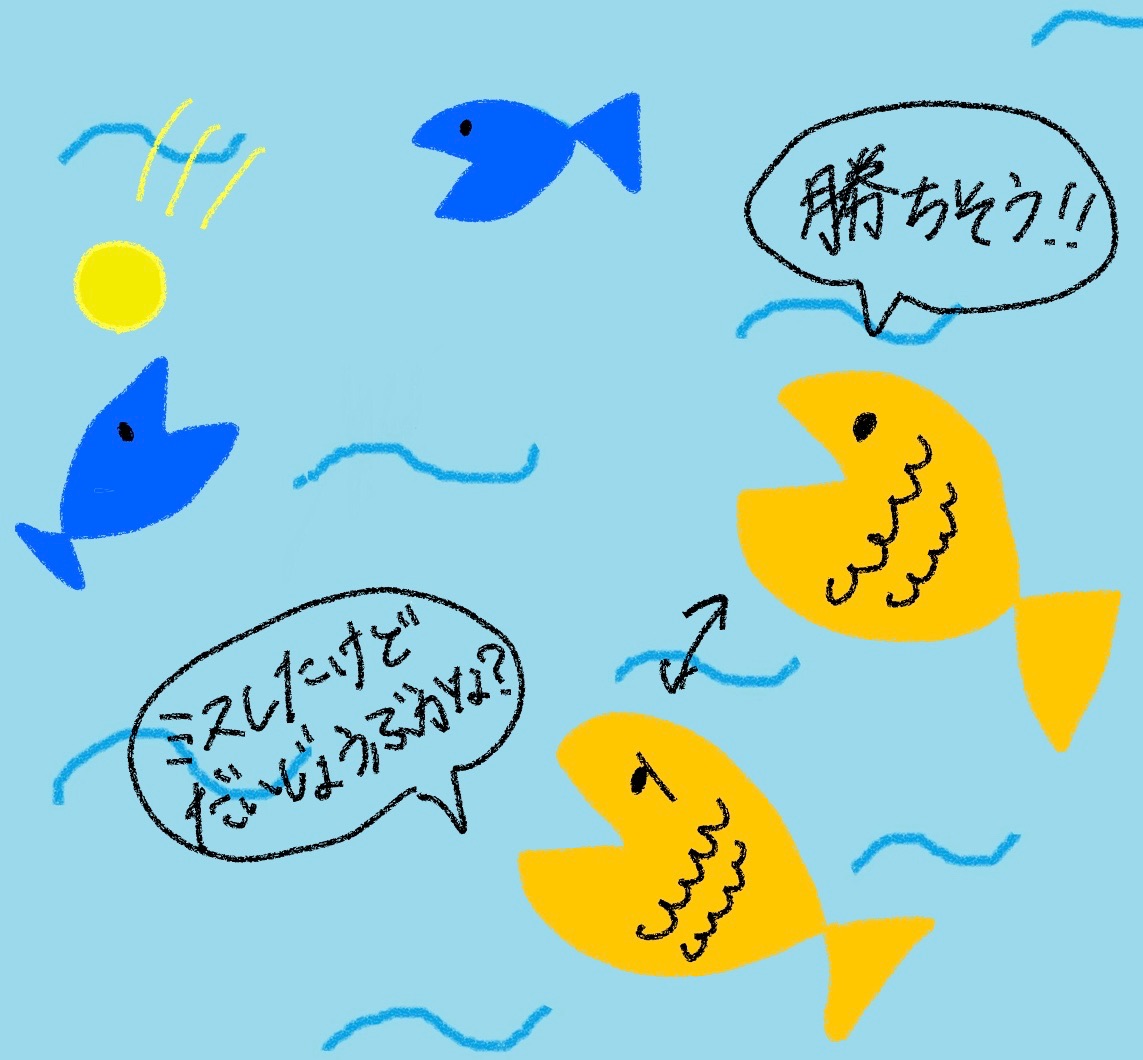 勝ちそう!!
ミスしたけど
だいじょうぶかな?